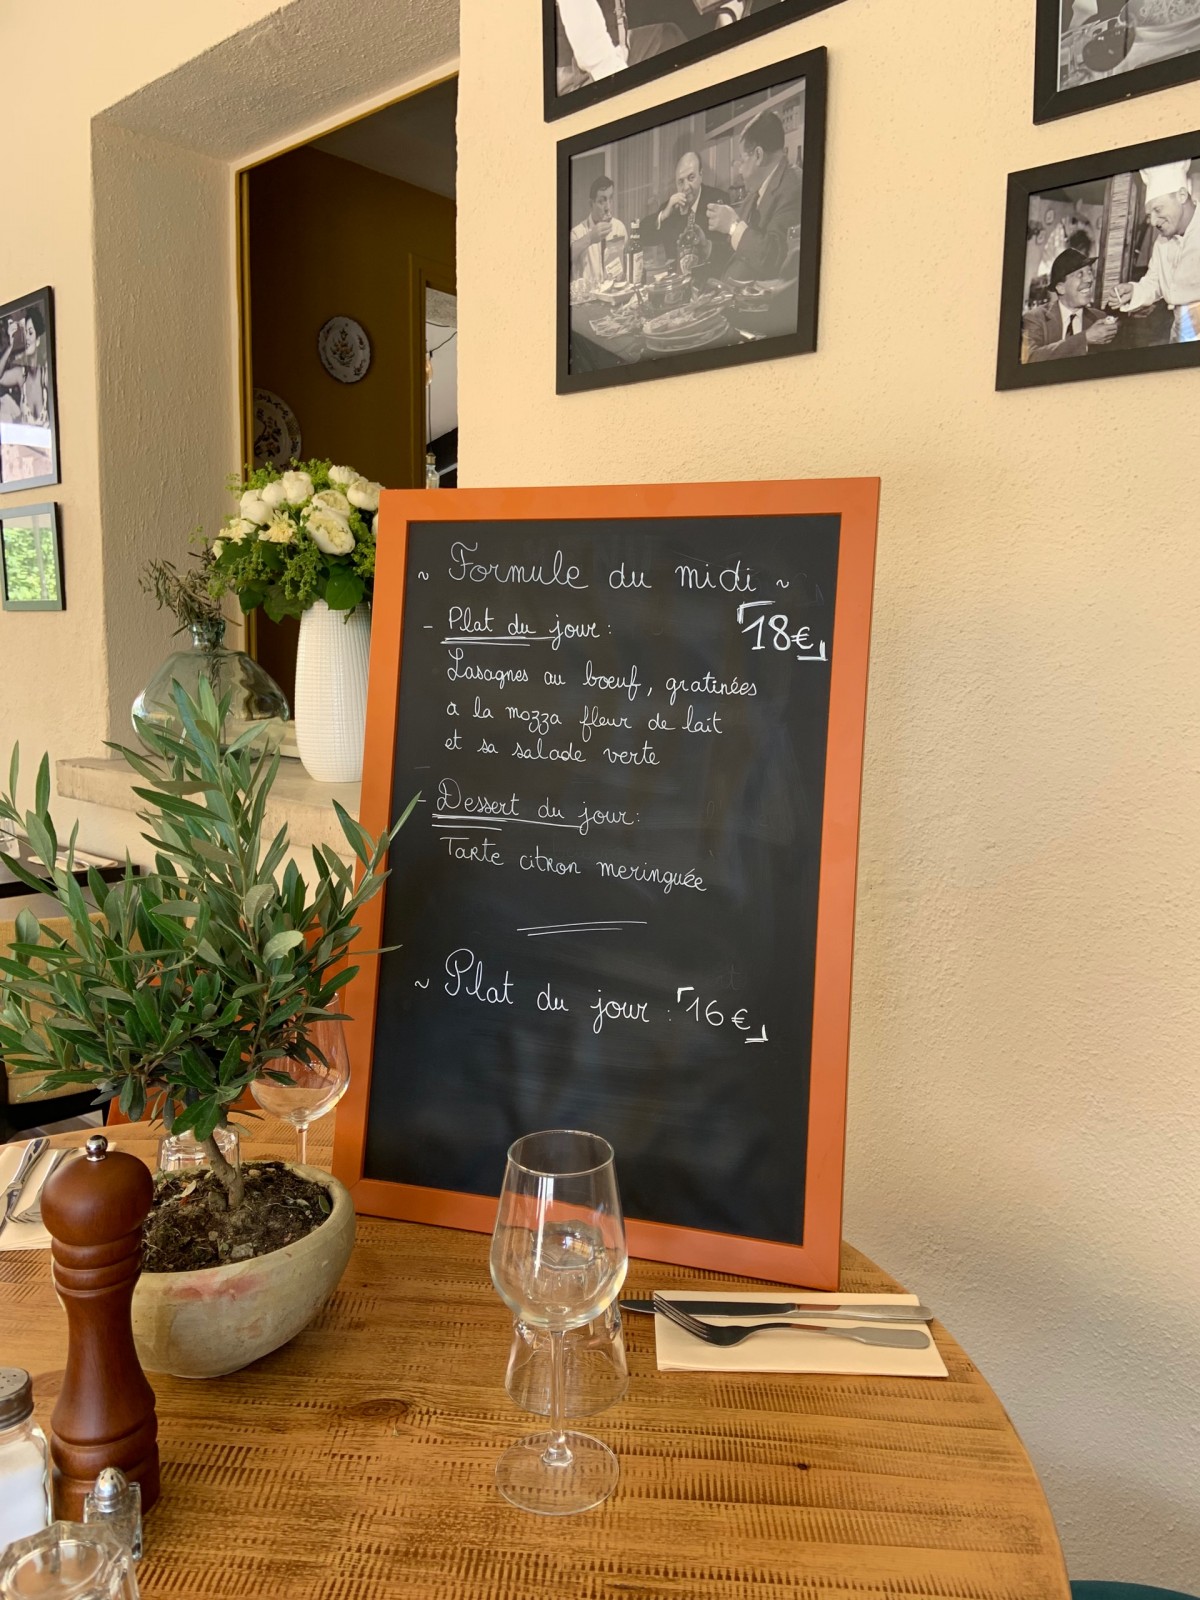 ~ Formule du midi ~
- Plat du jour : 18€
Lasagnes au bœuf, gratinées
a la mozza fleur de lait
et sa salade verte
- Dessert du jour :
Tarte citron meringuée
~ Plat du jour : 16€